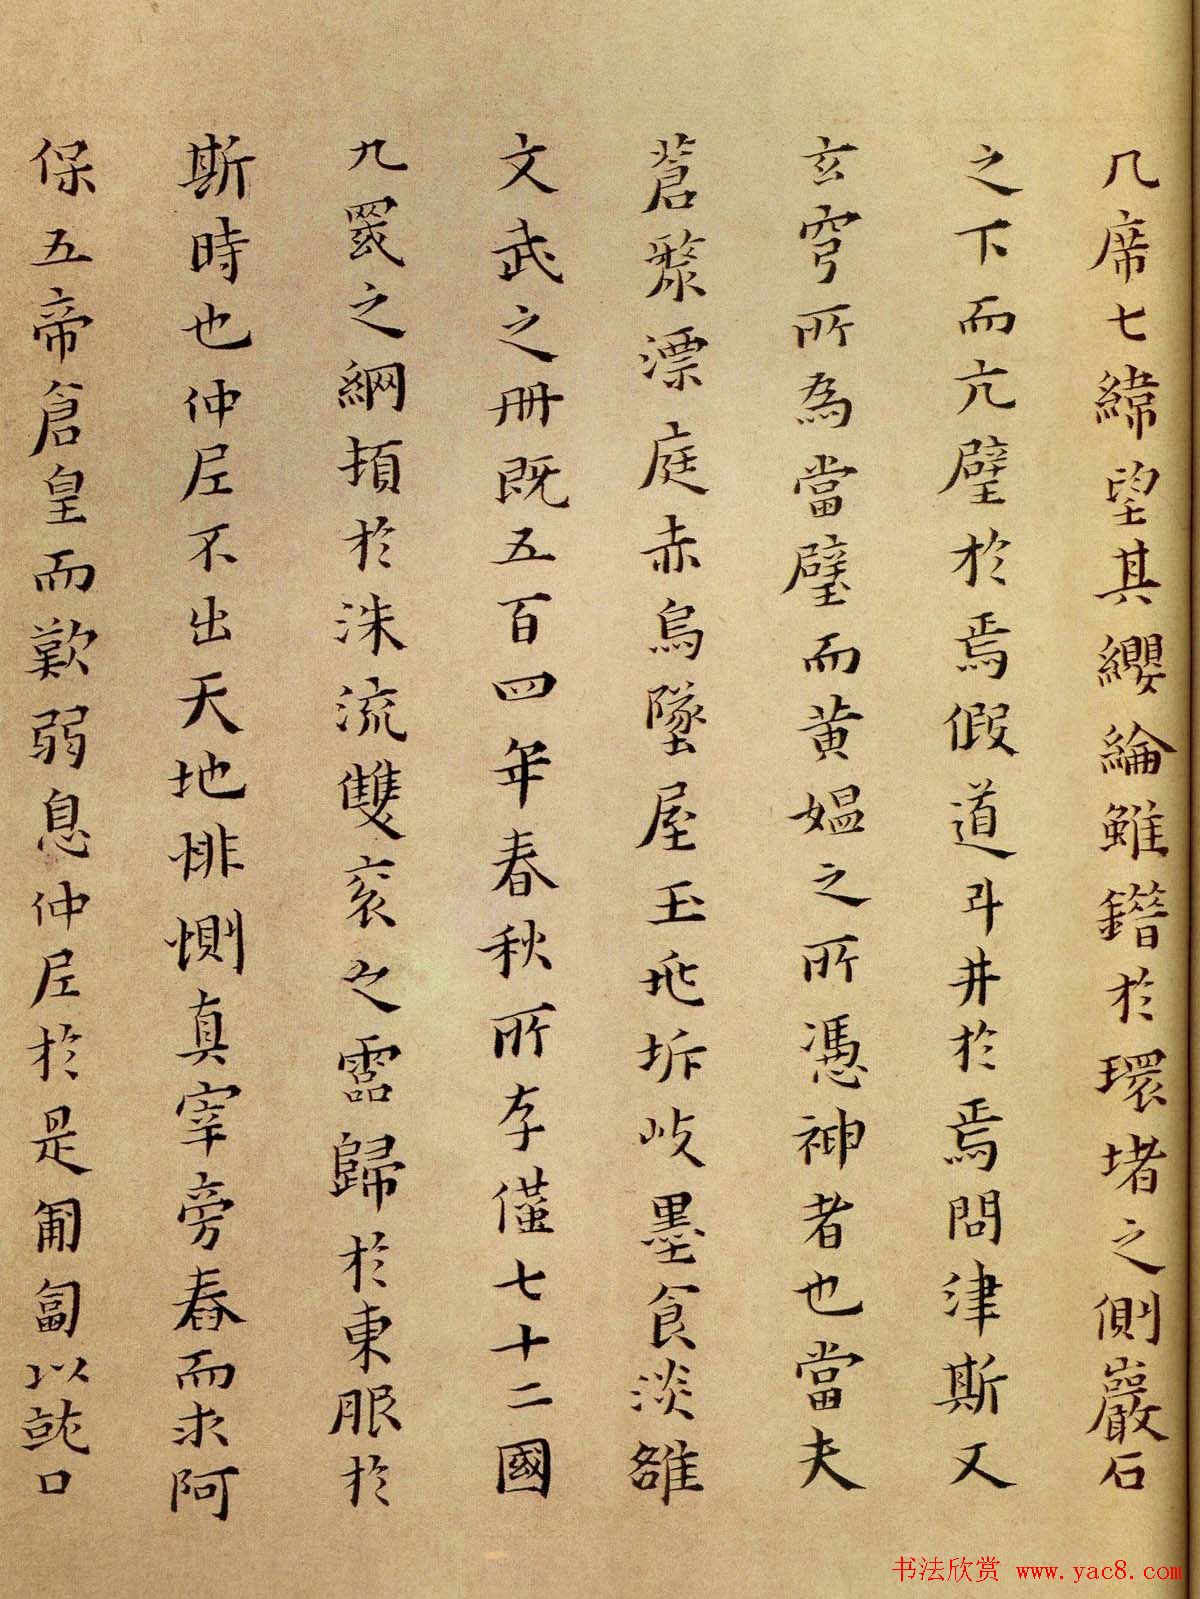 几席七緯望其纓綸雖鐕於環堵之側巖石
之下而亢璧於焉假道斗井於焉問津斯又
玄穹所為當璧而黃媪之所憑神者也當夫
蒼漦漂庭赤烏墜屋玉
坼岐墨食淡雒
文武之冊既五百四年春秋所存僅七十二國
九罭之綱頓於洙流雙亥之靈歸於東服於
斯時也仲尼不出天地悱惻真宰旁舂而求阿
保五帝倉皇而歎弱息仲尼於是匍匐以就口
书法欣赏 www.yac8.com